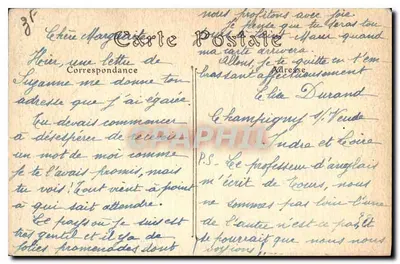 3F
Carte Postale
Correspondance
Adresse
Chère Marguerite
Hier, une lettre de
Suzanne me donne ton
adresse que j'ai égarée.
Tu devais commencer
à désespérer de recevoir
un mot de moi comme
je te l'avais promis, mais
tu vois! Tout vient à point
à qui sait attendre.
Le pays où je suis est
très gentil et il y a de
jolies promenades dont
nous profitons avec joie.
Je pense que tu seras
Maur quand
ma carte arrivera.
Allons, je te quitte en t'em
brassant affectueusement
Durand
Champigny s/ Veude
Indre et Loire
P.S. Le professeur d'anglais
m'écrit de Tours, nous
ne sommes pas loin l'une
de l'autre n'est ce pas, et
se pourrait que nous nous
voyions